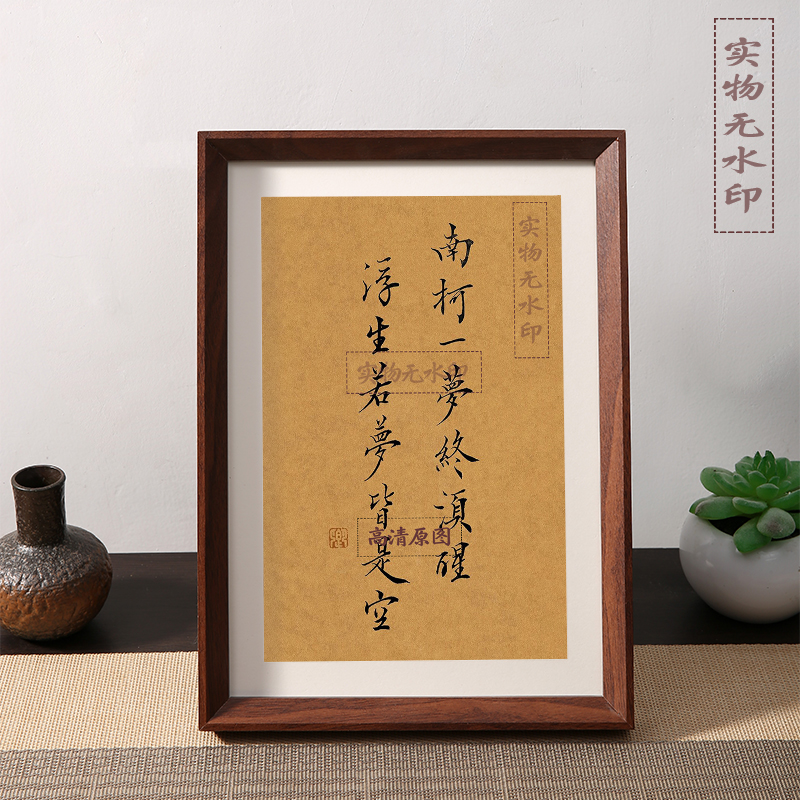 南柯一夢終須醒
浮生若夢皆是空
实物无水印
实物无水印
实物无水印
高清原图